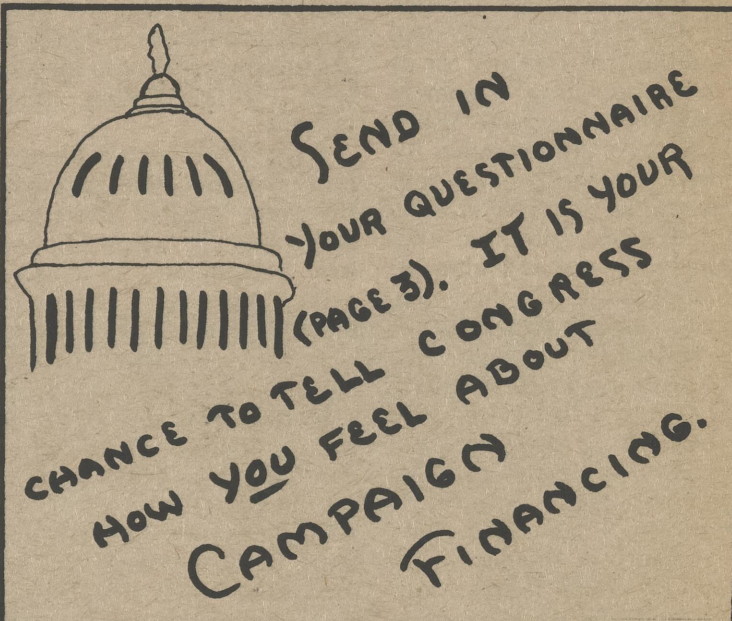 SEND IN
YOUR QUESTIONNAIRE
(PAGE 3). IT IS YOUR
CHANCE TO TELL CONGRESS
HOW YOU FEEL ABOUT
CAMPAIGN
FINANCING.